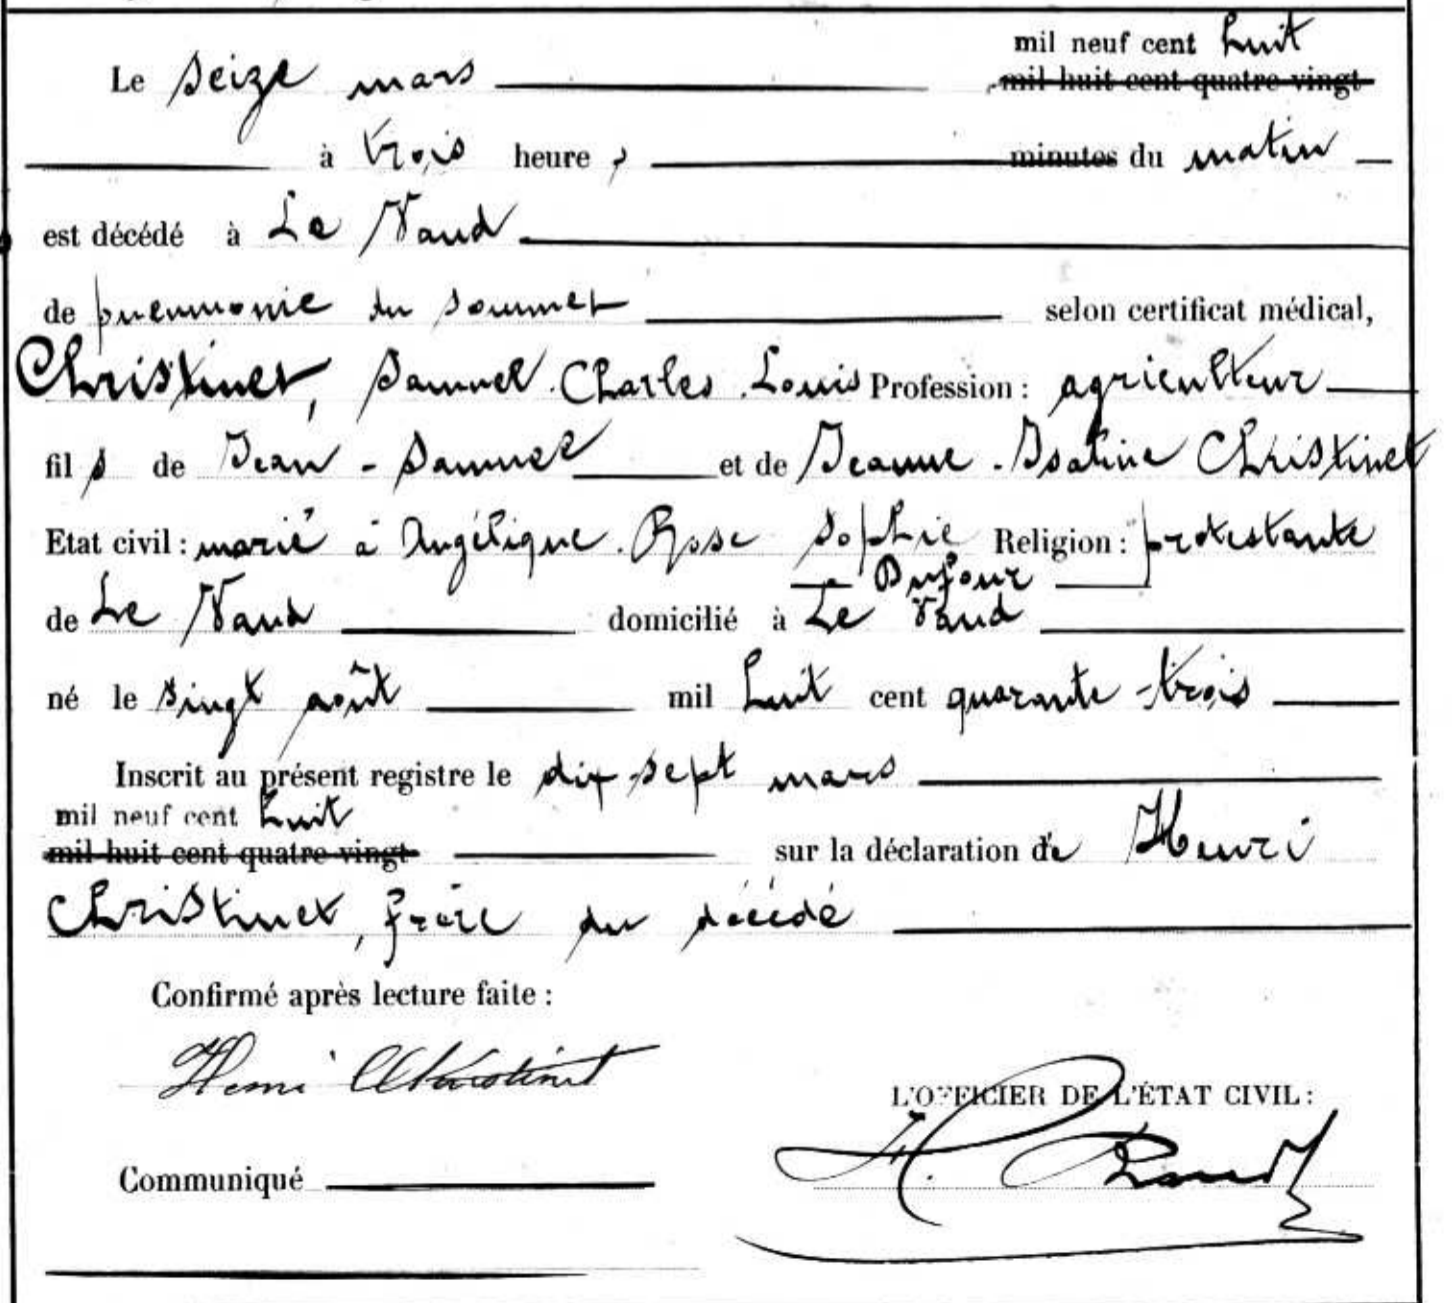 mil neuf cent huit
Le seize mars mil huit cent quatre-vingt
à trois heures minutes du matin
est décédé à Le Vaud
de pneumonie du sommet selon certificat médical,
Christinet, Samuel Charles Louis Profession : agriculteur
fils de Jean-Samuel et de Jeanne-Isaline Christinet
Etat civil : marié à Angélique Rose Sophie Religion : protestante
Dufour
de Le Vaud domicilié à Le Vaud
né le vingt août mil huit cent quarante-trois
Inscrit au présent registre le dix-sept mars
mil neuf cent huit
mil huit cent quatre-vingt sur la déclaration de Henri
Christinet, frère du décédé
Confirmé après lecture faite :
Henri Christinet
L'OFFICIER DE L'ÉTAT CIVIL :
Communiqué